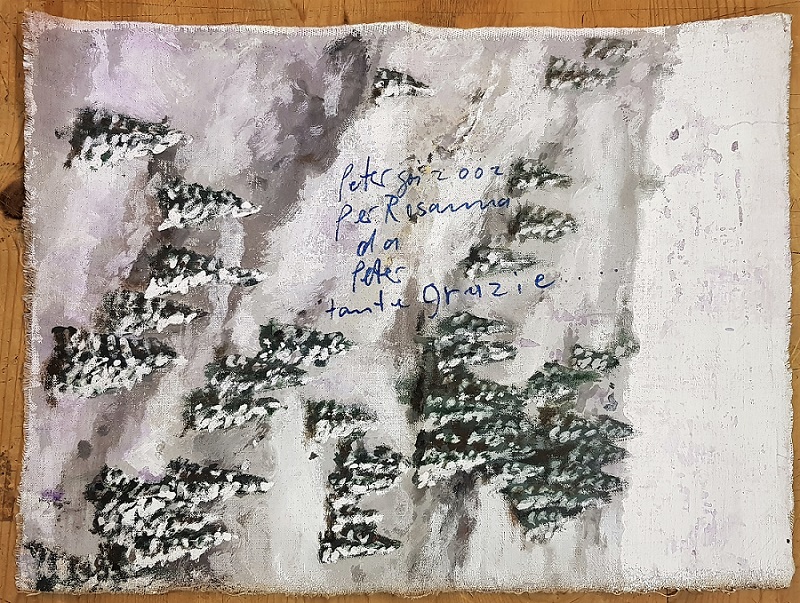 Peter giù 2002
per Rosanna
da
Peter
tante grazie......